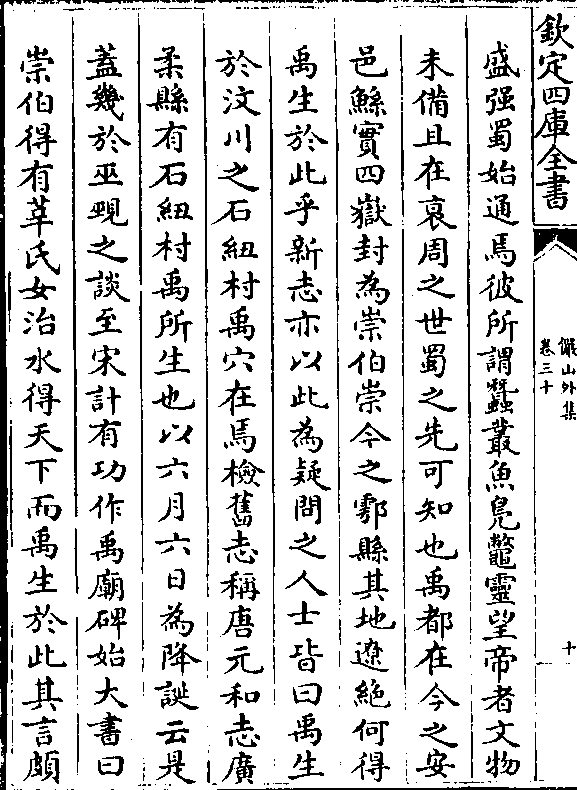 欽定四庫全書
儼山外集
卷三十
十
盛强蜀始通焉彼所謂蠶叢魚鳧鼈靈望帝者文物
未備且在衰周之世蜀之先可知也禹都在今之安
邑鯀實四嶽封為崇伯崇今之鄠縣其地遼絶何得
禹生於此乎新志亦以此為疑問之人士皆曰禹生
於汶川之石紐村禹穴在焉檢舊志稱唐元和志廣
柔縣有石紐村禹所生也以六月六日為降誕云是
蓋幾於巫覡之談至宋計有功作禹廟碑始大書曰
崇伯得有莘氏女治水得天下而禹生於此其言頗